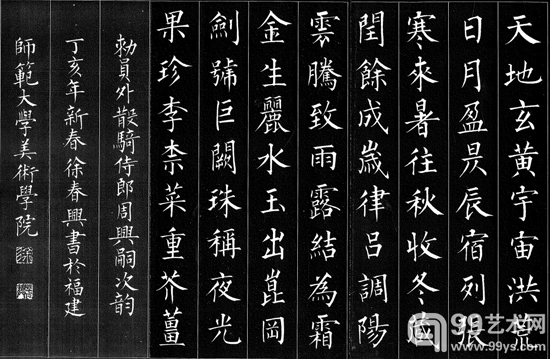 天地玄黃宇宙洪荒
日月盈昃辰宿列張
寒來暑往秋收冬藏
閏餘成歲律呂調陽
雲騰致雨露結為霜
金生麗水玉出崑岡
劍號巨闕珠稱夜光
果珍李柰菜重芥薑
勅員外散騎侍郎周興嗣次韵
丁亥年新春徐春興書於福建
師範大學美術學院
99艺术网
www.99ys.com